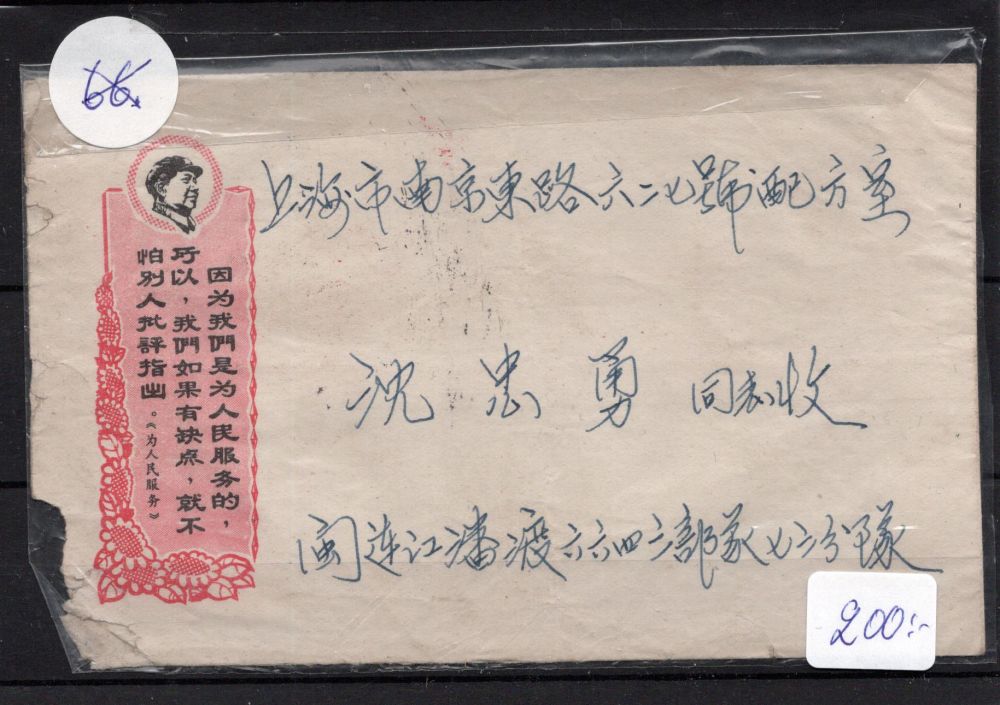 66.
上海市南京東路六二七號配方室
沈忠勇 同志收
闽连江潘渡六六四二部队七二分隊
因为我們是为人民服务的，
所以，我們如果有缺点，就不
怕别人批評指出。《为人民服务》
200:-